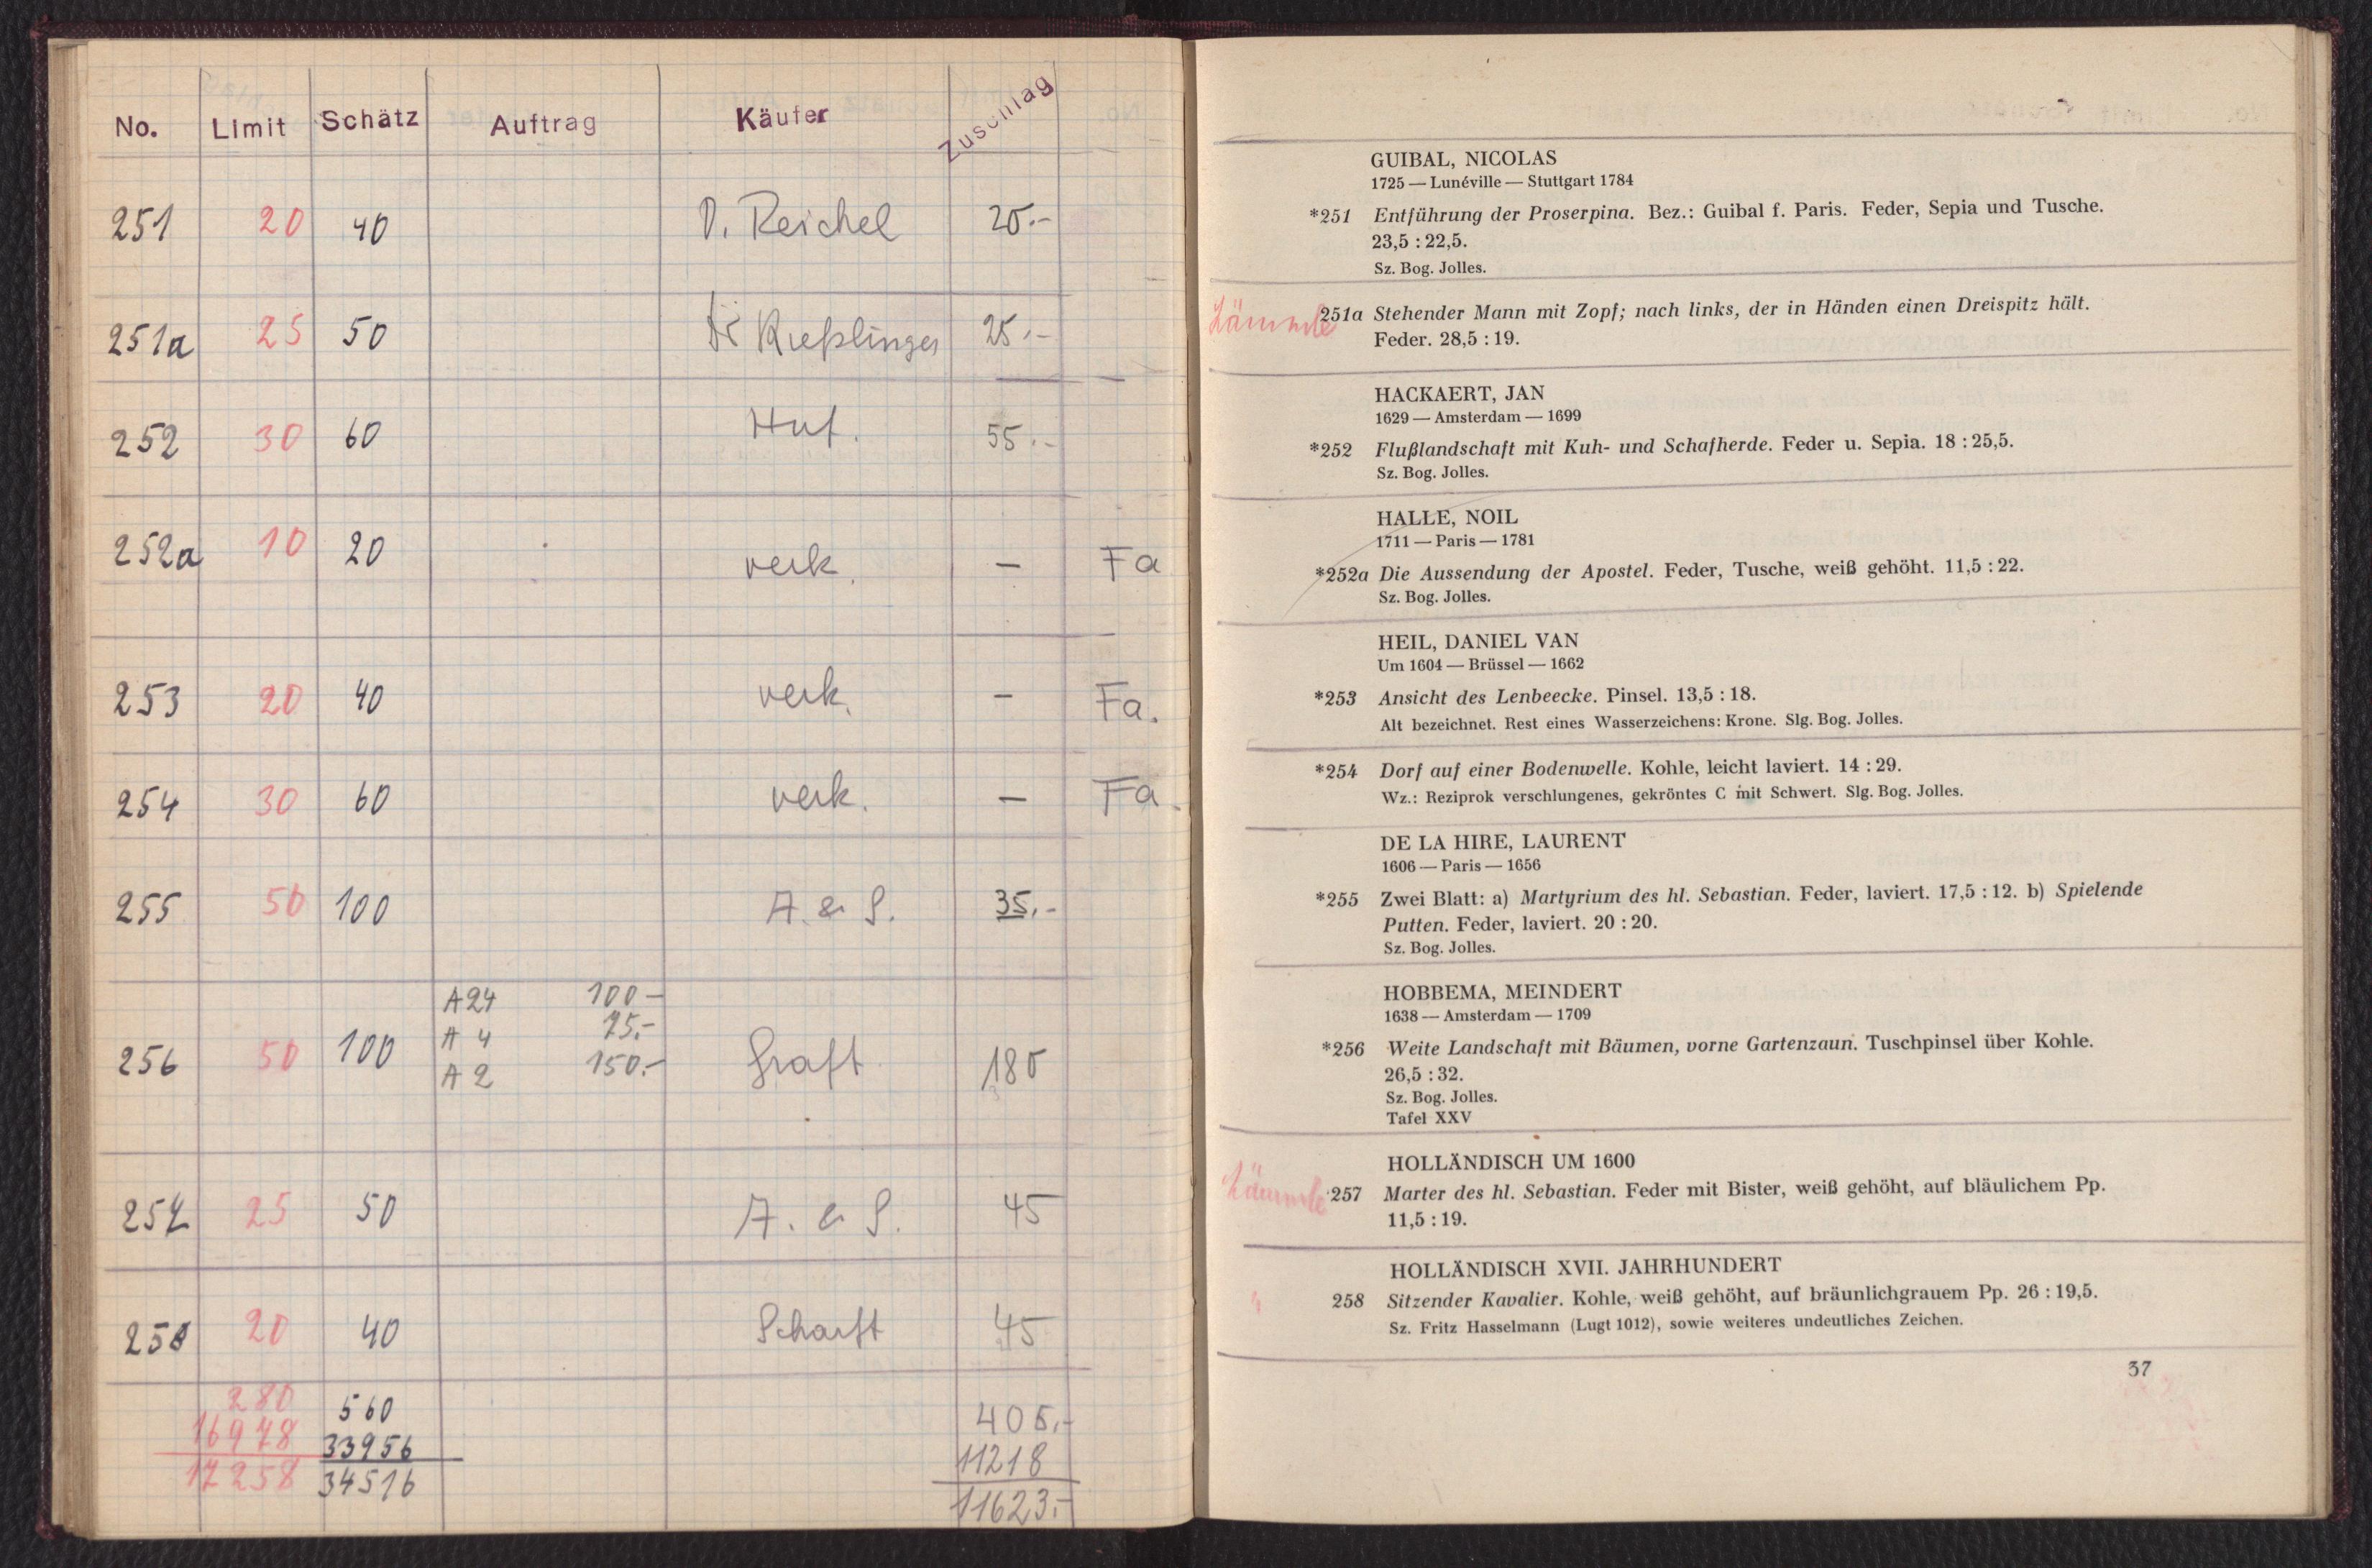 No. Limit Schätz Auftrag Käufer Zuschlag
251 20 40 D. Reichel 20.-
251a 25 50 Dr Kießlinger 25.-
252 30 60 Huf. 55.-
252a 10 20 verk. — Fa
253 20 40 verk. — Fa.
254 30 60 verk. — Fa.
255 50 100 A. & S. 35.-
A24 100-
A 4 75.-
256 50 100 A 2 150.- Graft 180
257 25 50 A. & S. 45
258 20 40 Scharft 45
280 560 405.-
16978 33956 11218
17258 34516 11623.-
GUIBAL, NICOLAS
1725 — Lunéville — Stuttgart 1784
*251 Entführung der Proserpina. Bez.: Guibal f. Paris. Feder, Sepia und Tusche.
23,5 : 22,5.
Sz. Bog. Jolles.
Lämmle 251a Stehender Mann mit Zopf; nach links, der in Händen einen Dreispitz hält.
Feder. 28,5 : 19.
HACKAERT, JAN
1629 — Amsterdam — 1699
*252 Flußlandschaft mit Kuh- und Schafherde. Feder u. Sepia. 18 : 25,5.
Sz. Bog. Jolles.
HALLE, NOIL
1711 — Paris — 1781
*252a Die Aussendung der Apostel. Feder, Tusche, weiß gehöht. 11,5 : 22.
Sz. Bog. Jolles.
HEIL, DANIEL VAN
Um 1604 — Brüssel — 1662
*253 Ansicht des Lenbeecke. Pinsel. 13,5 : 18.
Alt bezeichnet. Rest eines Wasserzeichens: Krone. Slg. Bog. Jolles.
*254 Dorf auf einer Bodenwelle. Kohle, leicht laviert. 14 : 29.
Wz.: Reziprok verschlungenes, gekröntes C mit Schwert. Slg. Bog. Jolles.
DE LA HIRE, LAURENT
1606 — Paris — 1656
*255 Zwei Blatt: a) Martyrium des hl. Sebastian. Feder, laviert. 17,5 : 12. b) Spielende
Putten. Feder, laviert. 20 : 20.
Sz. Bog. Jolles.
HOBBEMA, MEINDERT
1638 — Amsterdam — 1709
*256 Weite Landschaft mit Bäumen, vorne Gartenzaun. Tuschpinsel über Kohle.
26,5 : 32.
Sz. Bog. Jolles.
Tafel XXV
HOLLÄNDISCH UM 1600
Lämmle 257 Marter des hl. Sebastian. Feder mit Bister, weiß gehöht, auf bläulichem Pp.
11,5 : 19.
HOLLÄNDISCH XVII. JAHRHUNDERT
258 Sitzender Kavalier. Kohle, weiß gehöht, auf bräunlichgrauem Pp. 26 : 19,5.
Sz. Fritz Hasselmann (Lugt 1012), sowie weiteres undeutliches Zeichen.
37